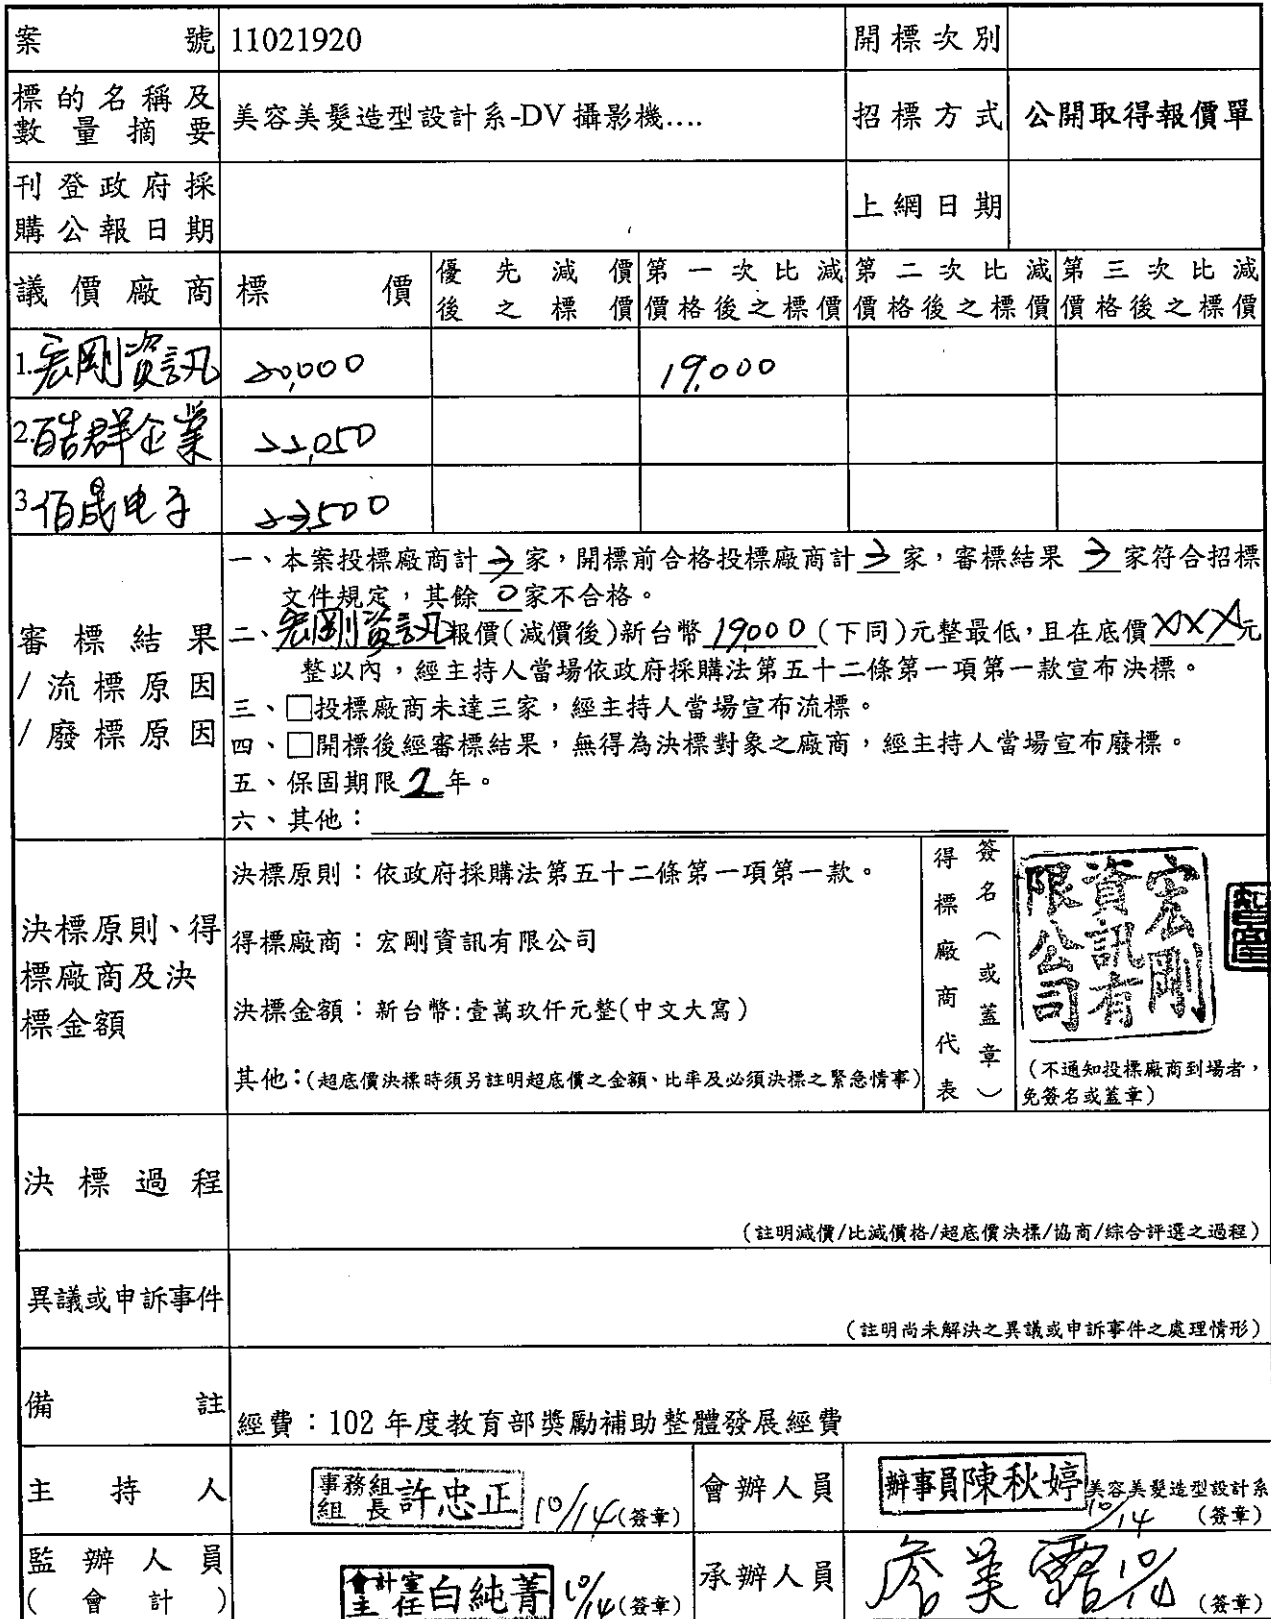 案號 11021920 開標次別
標的名稱及數量摘要 美容美髮造型設計系-DV攝影機.... 招標方式 公開取得報價單
刊登政府採購公報日期 上網日期
議價廠商 標價 優先減價後之標價 第一次比減價格後之標價 第二次比減價格後之標價 第三次比減價格後之標價
1.宏剛資訊 20,000 19,000
2.酷群企業 22,050
3.佰晟电子 23,500
審標結果/流標原因/廢標原因
一、本案投標廠商計3家,開標前合格投標廠商計3家,審標結果 3家符合招標
文件規定,其餘0家不合格。
二、宏剛資訊報價(減價後)新台幣19,000(下同)元整最低,且在底價XXX元
整以內,經主持人當場依政府採購法第五十二條第一項第一款宣布決標。
三、□投標廠商未達三家,經主持人當場宣布流標。
四、□開標後經審標結果,無得為決標對象之廠商,經主持人當場宣布廢標。
五、保固期限2年。
六、其他:
決標原則、得標廠商及決標金額
決標原則:依政府採購法第五十二條第一項第一款。
得標廠商:宏剛資訊有限公司
決標金額:新台幣:壹萬玖仟元整(中文大寫)
其他:(超底價決標時須另註明超底價之金額、比率及必須決標之緊急情事)
得標廠商代表
簽名(或蓋章)
宏剛資訊有限公司
(不通知投標廠商到場者,
免簽名或蓋章)
決標過程
(註明減價/比減價格/超底價決標/協商/綜合評選之過程)
異議或申訴事件
(註明尚未解決之異議或申訴事件之處理情形)
備註 經費:102年度教育部獎勵補助整體發展經費
主持人 事務組組長許忠正 10/14(簽章) 會辦人員 辦事員陳秋婷 美容美髮造型設計系 10/14 (簽章)
監辦人員(會計) 會計室主任白純菁 10/14(簽章) 承辦人員 美 10/14 (簽章)